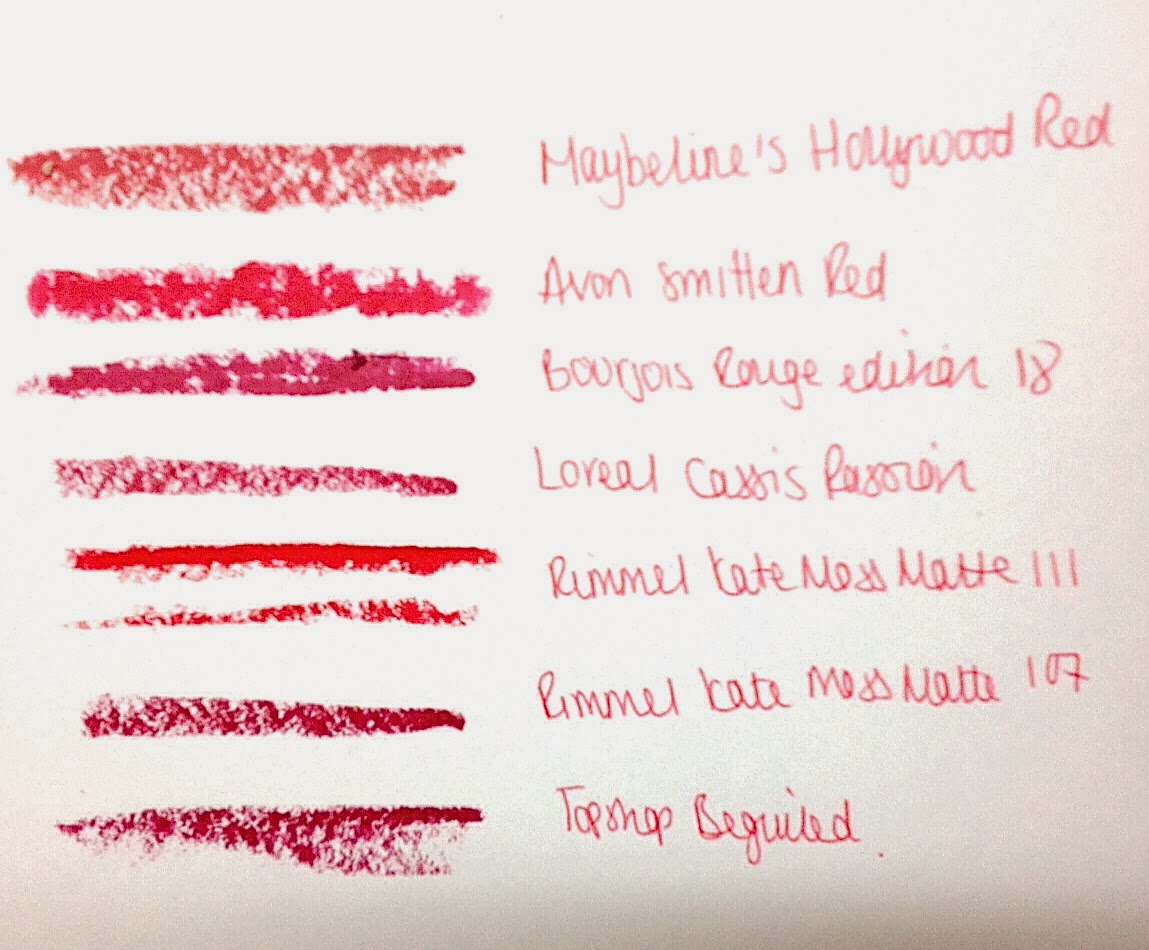 Maybeline's Hollywood Red
Avon Smitten Red
Bourjois Rouge edition 18
Loreal Cassis Passion
Rimmel Kate Moss Matte 111
Rimmel Kate Moss Matte 107
Topshop Beguiled.